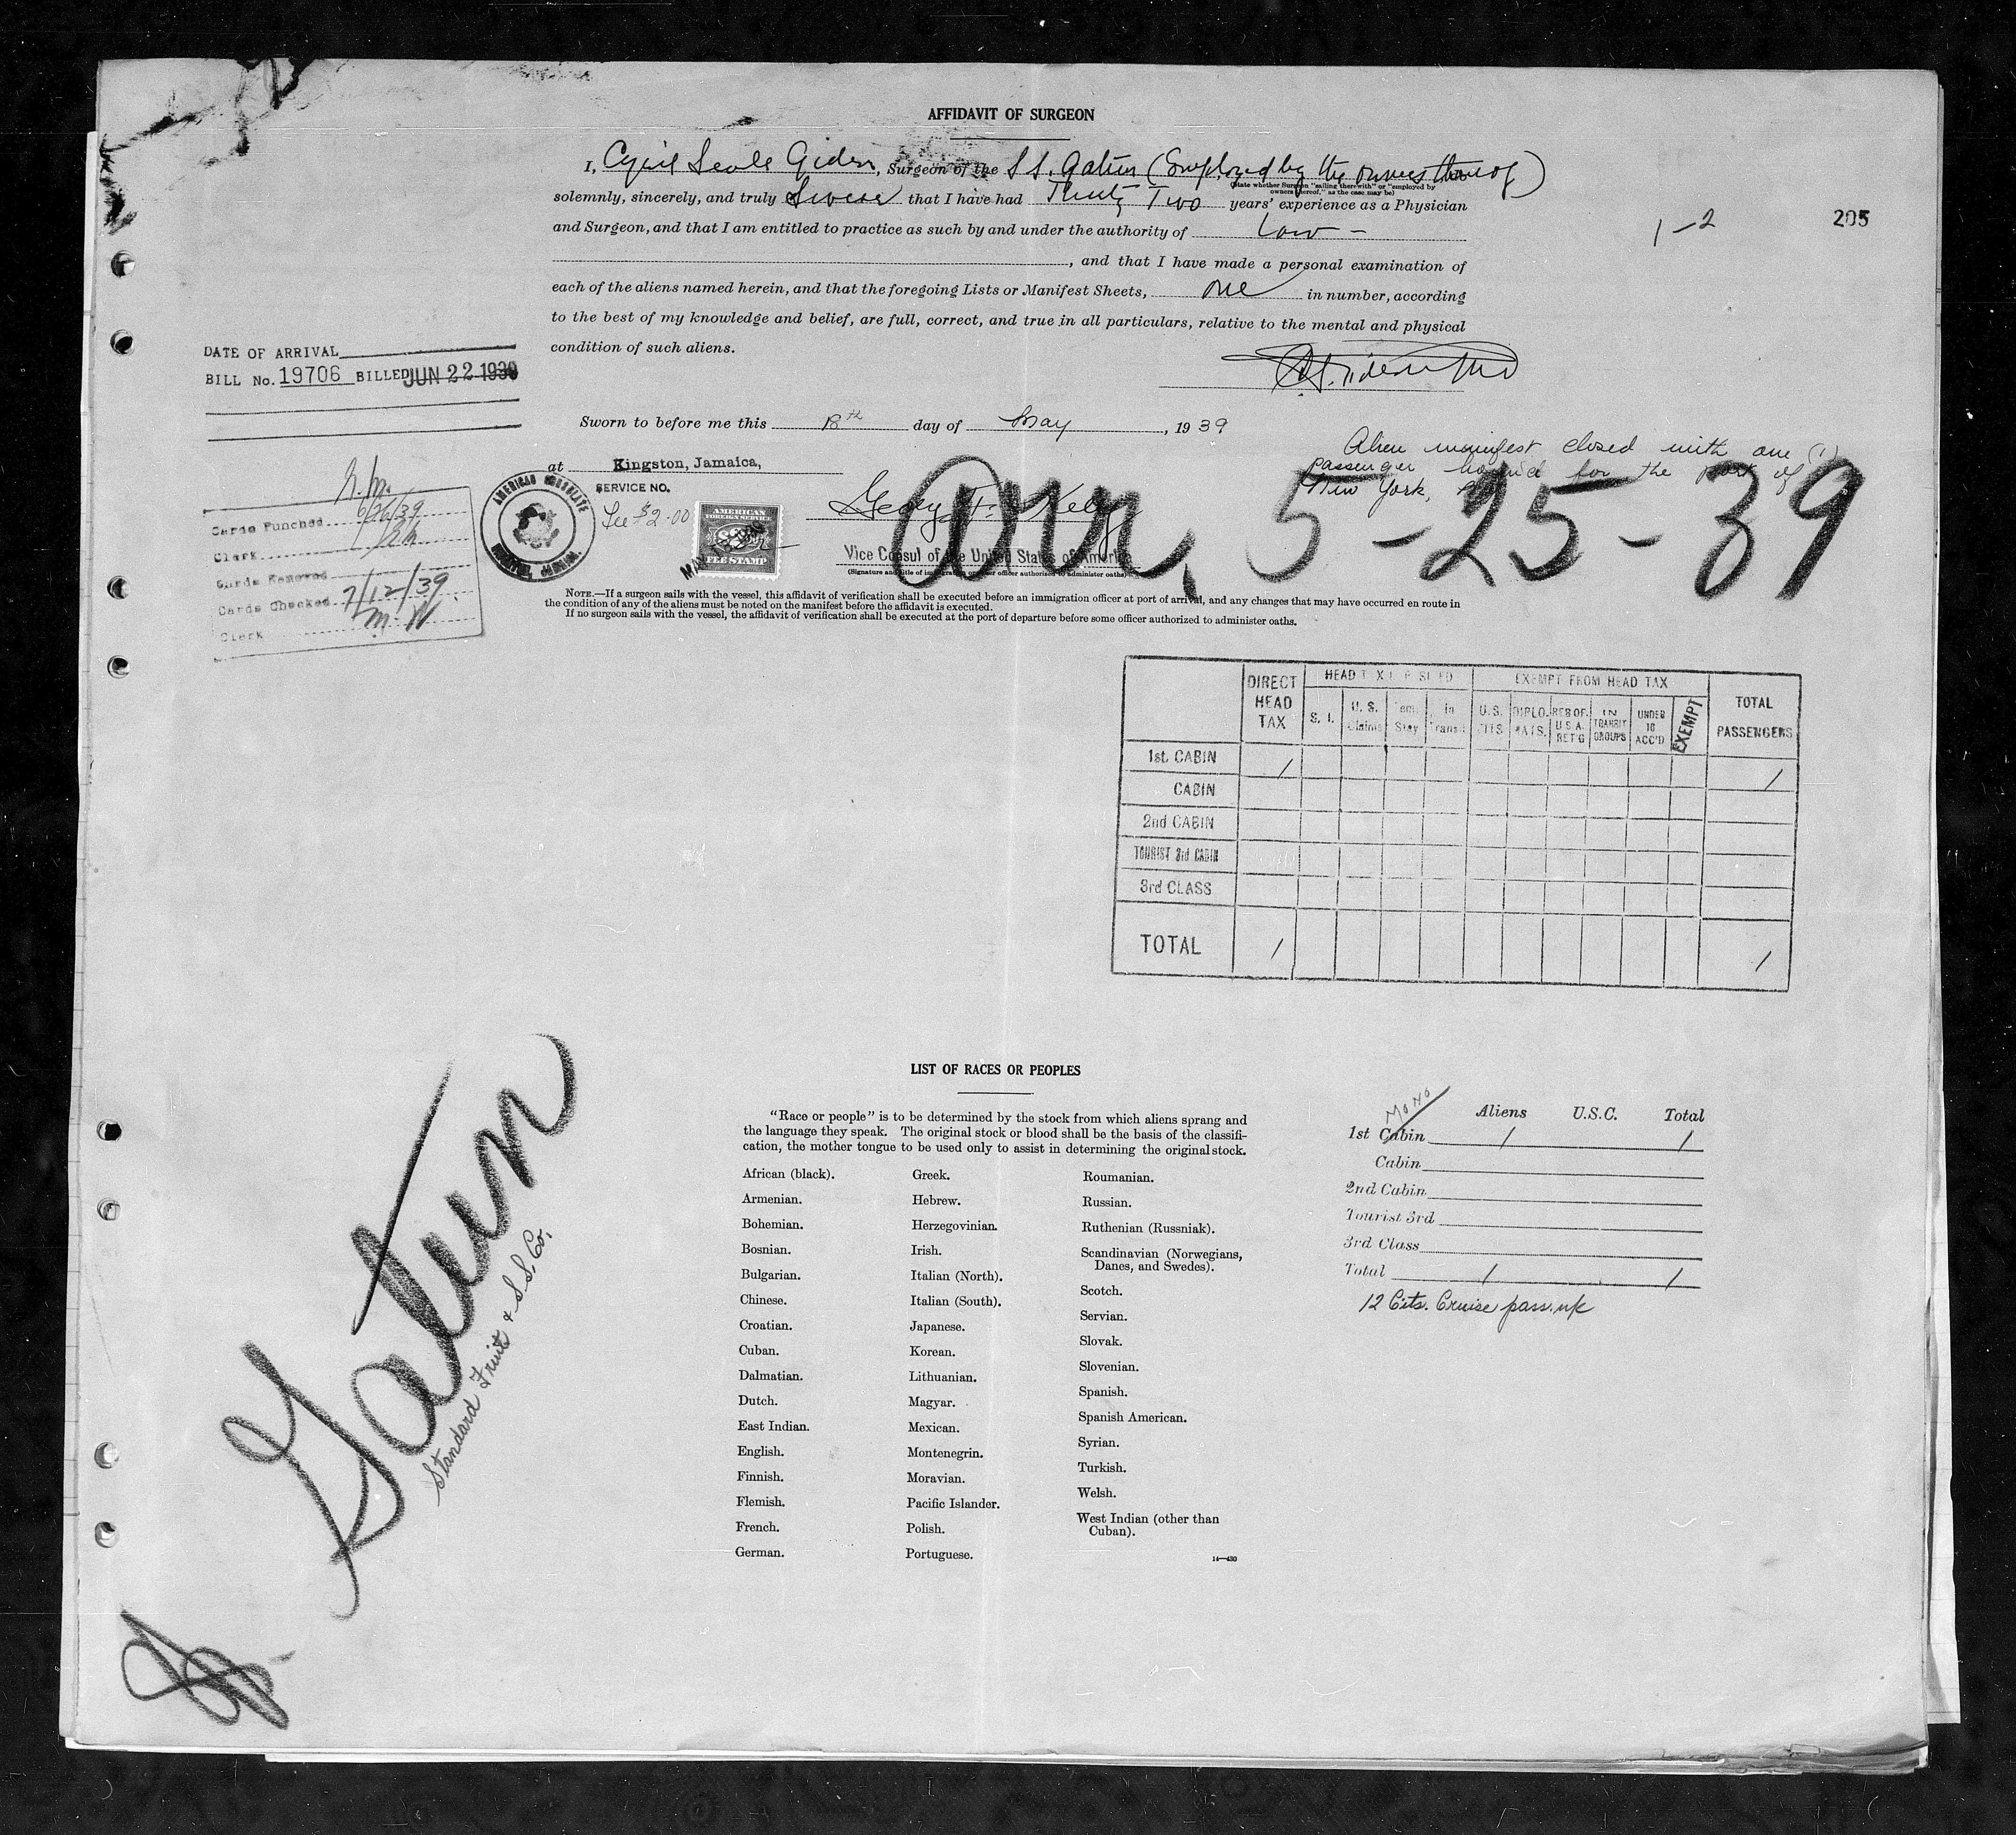 AFFIDAVIT OF SURGEON
I, Cyril Gideon, Surgeon of the S S. Gatun (Employed by the owners thereof)
(State whether Surgeon "sailing therewith" or "employed by
owners thereof," as the case may be)
solemnly, sincerely, and truly Swear that I have had Thirty Two years' experience as a Physician
and Surgeon, and that I am entitled to practice as such by and under the authority of Law -
, and that I have made a personal examination of
each of the aliens named herein, and that the foregoing Lists or Manifest Sheets, one in number, according
to the best of my knowledge and belief, are full, correct, and true in all particulars, relative to the mental and physical
condition of such aliens.
1-2
205
DATE OF ARRIVAL
BILL No. 19706 BILLED JUN 22 1939
Sworn to before me this 18th day of May, 1939
at Kingston, Jamaica,
Alien manifest closed with one (1)
passenger bound for the port of
New York,
Arr. 5-25-39
Cards Punched 6/26/39
Clerk
Cards Removed
Cards Checked 7/12/39
Clerk M. W
AMERICAN CONSULATE
SERVICE NO.
Fee $2.00
AMERICAN
FOREIGN SERVICE
FEE STAMP
George F. Kelly
Vice Consul of the United States of America
(Signature and title of immigration or other officer authorized to administer oaths)
NOTE.—If a surgeon sails with the vessel, this affidavit of verification shall be executed before an immigration officer at port of arrival, and any changes that may have occurred en route in
the condition of any of the aliens must be noted on the manifest before the affidavit is executed.
If no surgeon sails with the vessel, the affidavit of verification shall be executed at the port of departure before some officer authorized to administer oaths.
DIRECT HEAD TAX
EXEMPT FROM HEAD TAX
TOTAL PASSENGERS
S. I.
U. S. Claims
Tem. Stay
In Transit
U.S. CITS
DIPLOMATS.
RES OF. U.S.A. RET'G
IN TRANSIT GROUPS
UNDER 16 ACC'D
EXEMPT
1st. CABIN 1 1
CABIN
2nd CABIN
TOURIST 3rd CABIN
3rd CLASS
TOTAL 1 1
Gatun
Standard Fruit & S.S. Co.
LIST OF RACES OR PEOPLES
"Race or people" is to be determined by the stock from which aliens sprang and
the language they speak. The original stock or blood shall be the basis of the classifi-
cation, the mother tongue to be used only to assist in determining the original stock.
African (black).
Armenian.
Bohemian.
Bosnian.
Bulgarian.
Chinese.
Croatian.
Cuban.
Dalmatian.
Dutch.
East Indian.
English.
Finnish.
Flemish.
French.
German.
Greek.
Hebrew.
Herzegovinian.
Irish.
Italian (North).
Italian (South).
Japanese.
Korean.
Lithuanian.
Magyar.
Mexican.
Montenegrin.
Moravian.
Pacific Islander.
Polish.
Portuguese.
Roumanian.
Russian.
Ruthenian (Russniak).
Scandinavian (Norwegians,
Danes, and Swedes).
Scotch.
Servian.
Slovak.
Slovenian.
Spanish.
Spanish American.
Syrian.
Turkish.
Welsh.
West Indian (other than
Cuban).
14—430
MONO
Aliens U.S.C. Total
1st Cabin 1 1
Cabin
2nd Cabin
Tourist 3rd
3rd Class
Total 1 1
12 Cits. Cruise pass.